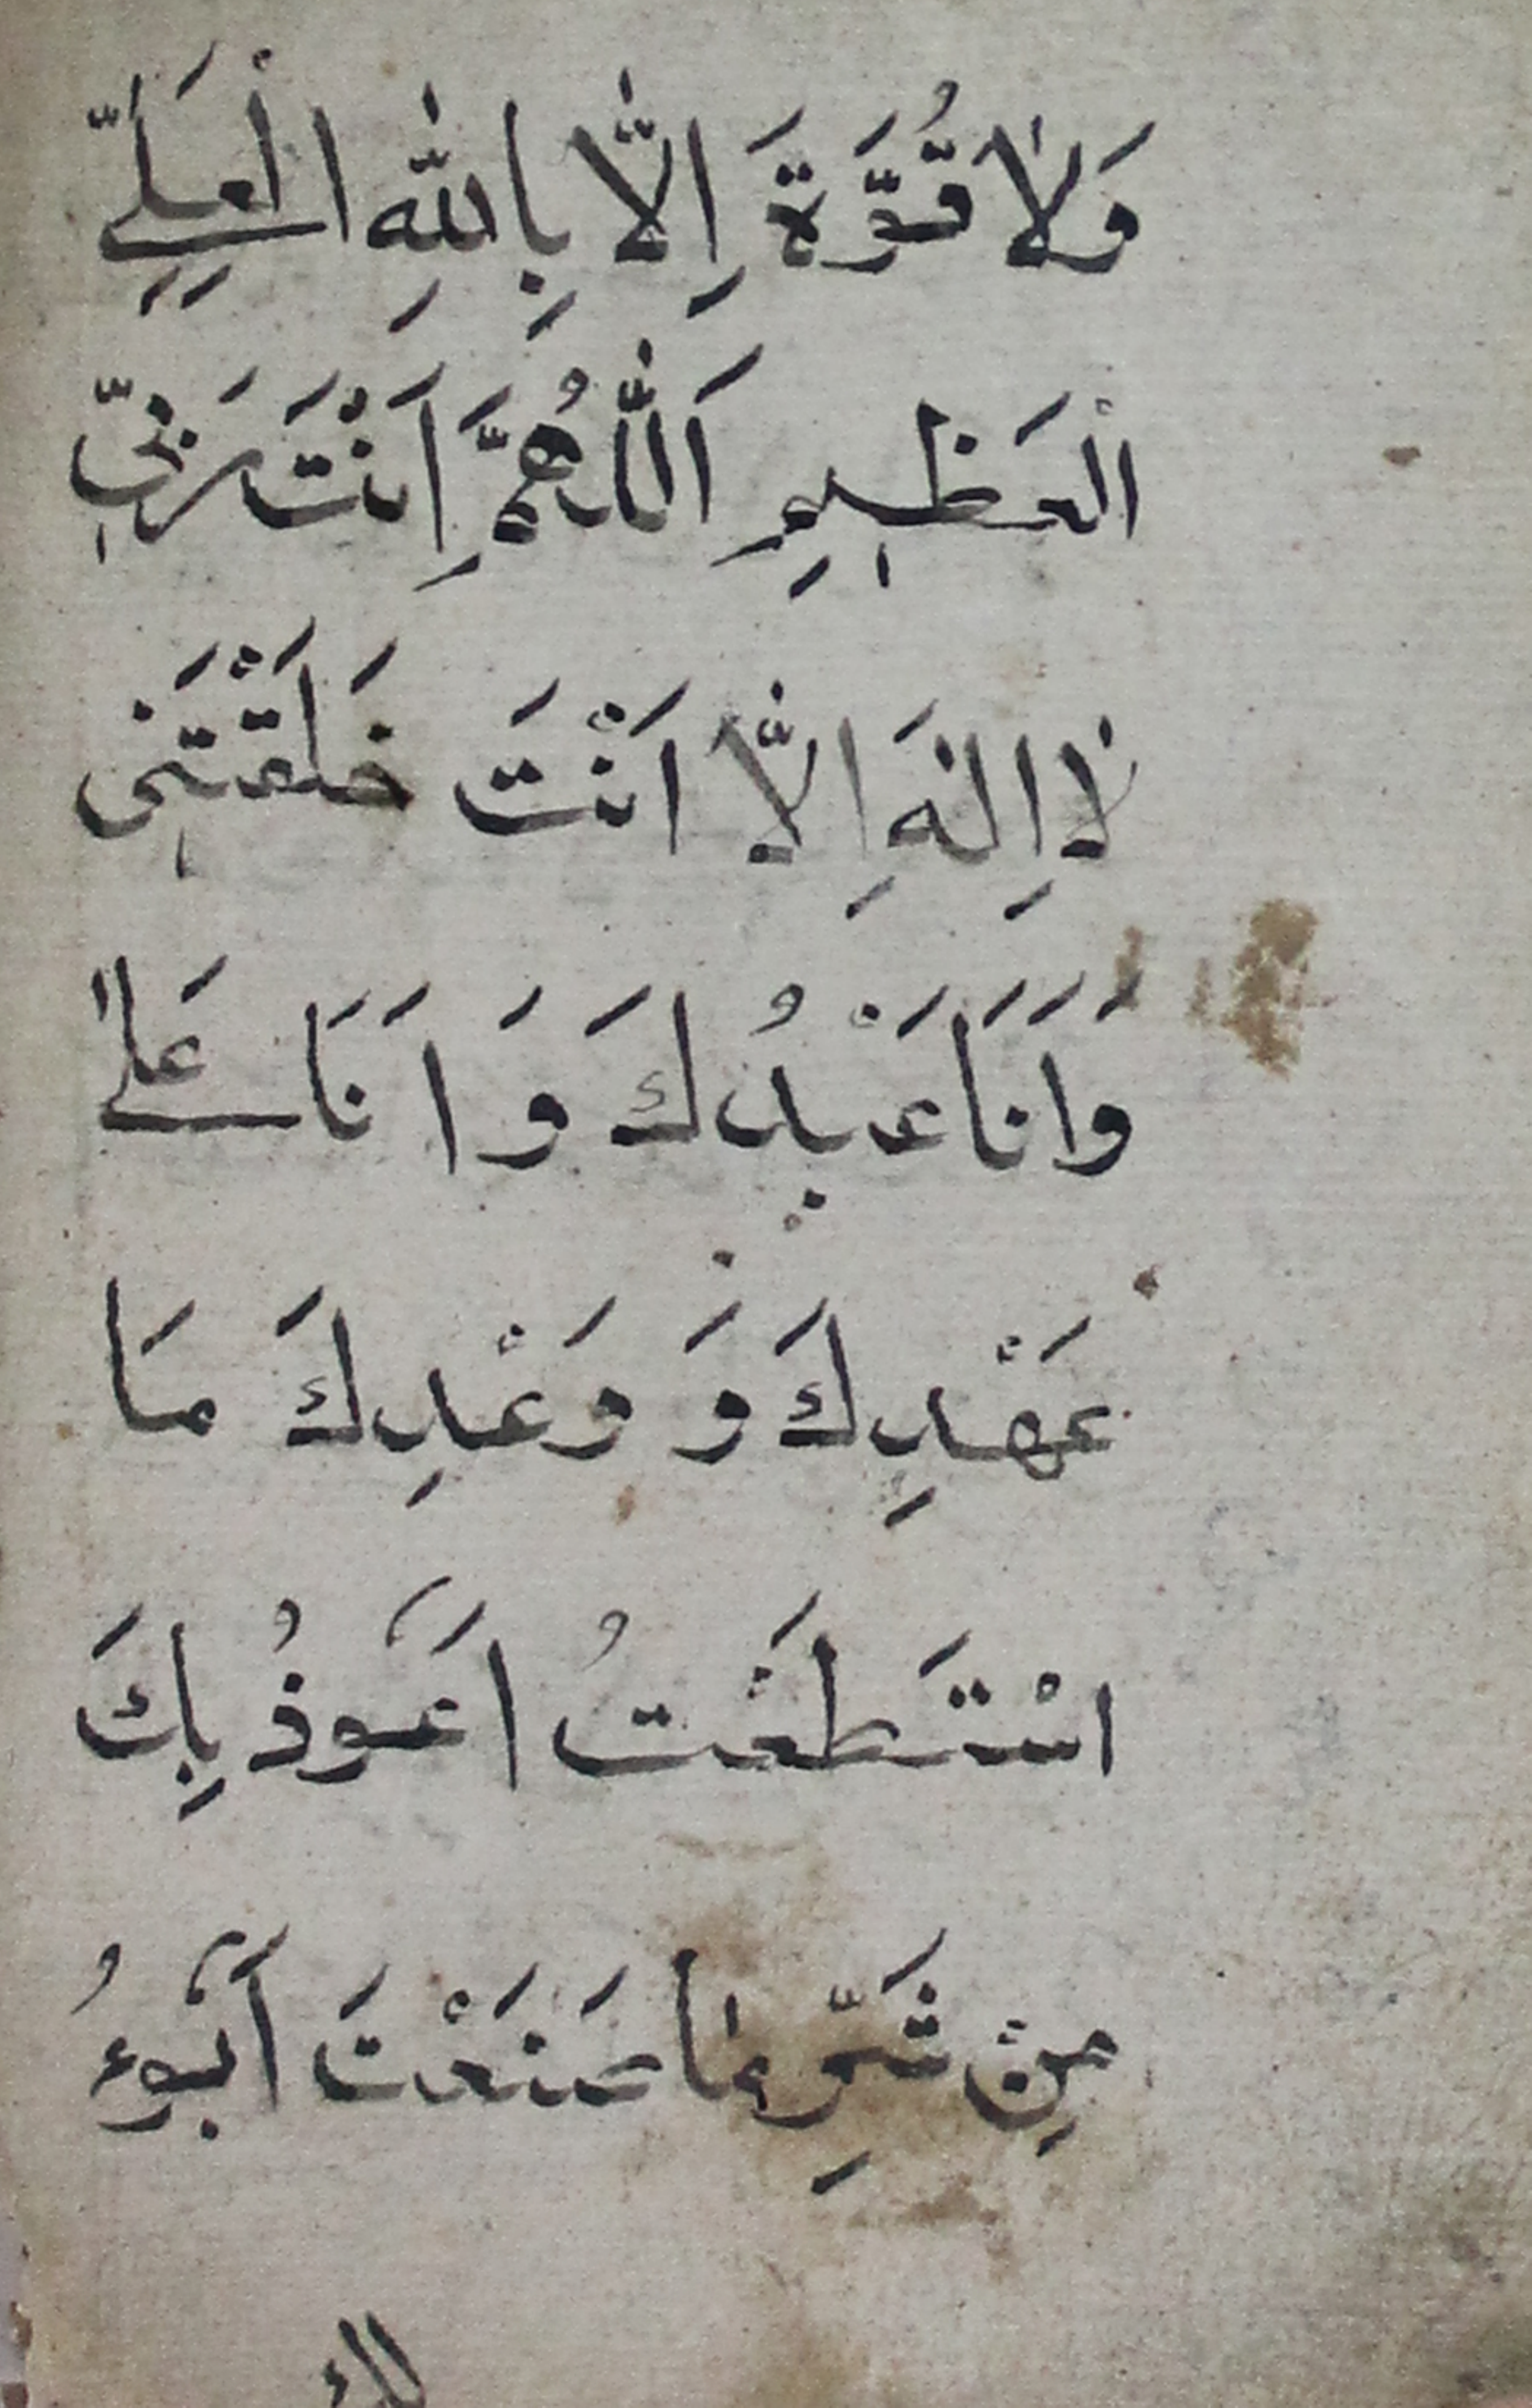 وَلَا قُوَّةَ اِلَّا بِاللّٰهِ الْعَلِيِّ
الْعَظِيمِ اَللّٰهُمَّ اَنْتَ رَبِّي
لَا اِلٰهَ اِلَّا اَنْتَ خَلَقْتَنِي
وَاَنَا عَبْدُكَ وَاَنَا عَلٰى
عَهْدِكَ وَ وَعْدِكَ مَا
اسْتَطَعْتُ اَعُوذُ بِكَ
مِنْ شَرِّ مَا صَنَعْتَ أَبُوءُ
لك